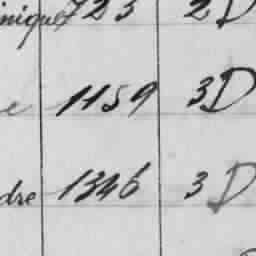 nique 723 2D
e 1159 3D
dre 1346 3D